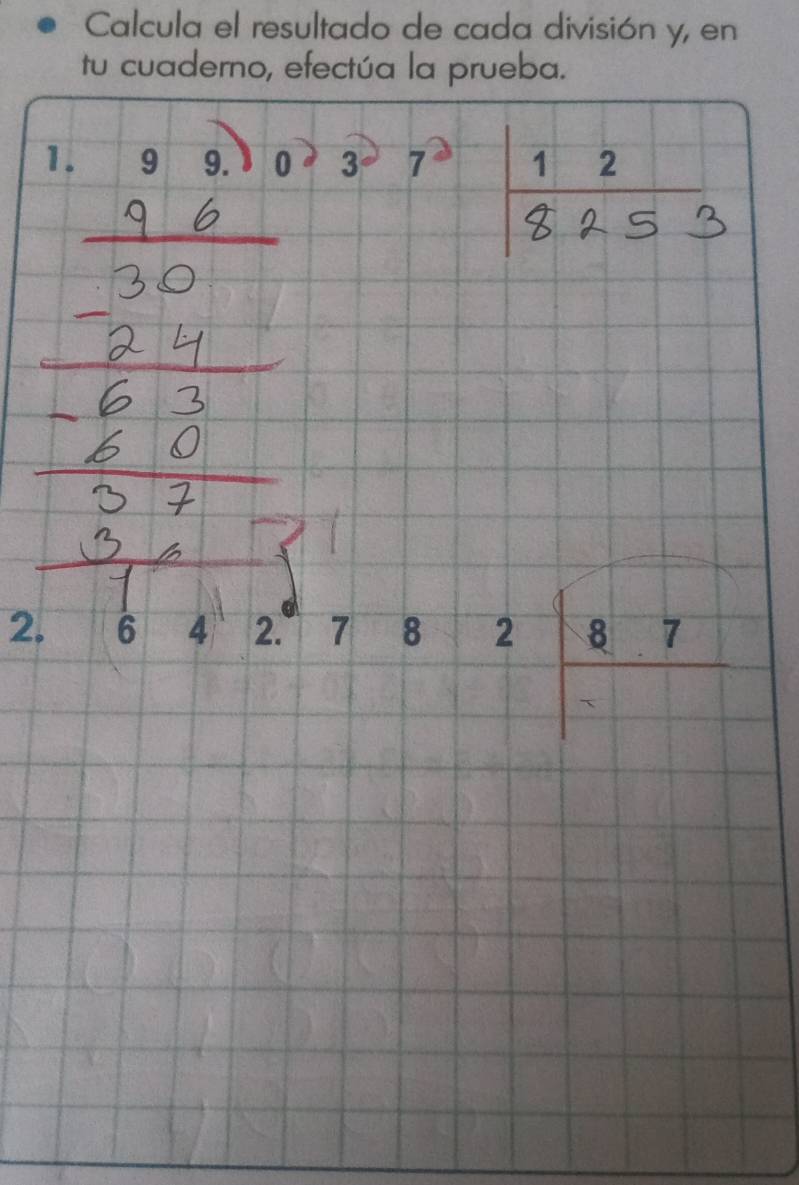 Calcula el resultado de cada división y, en
tu cuaderno, efectúa la prueba.
1. 9 9. 0 3 7 1 2
9 6 8 2 5 3
30
- 2 4
- 6 3
6 0
3 7
3 6
1
2. 6 4 2. 7 8 2 8 7